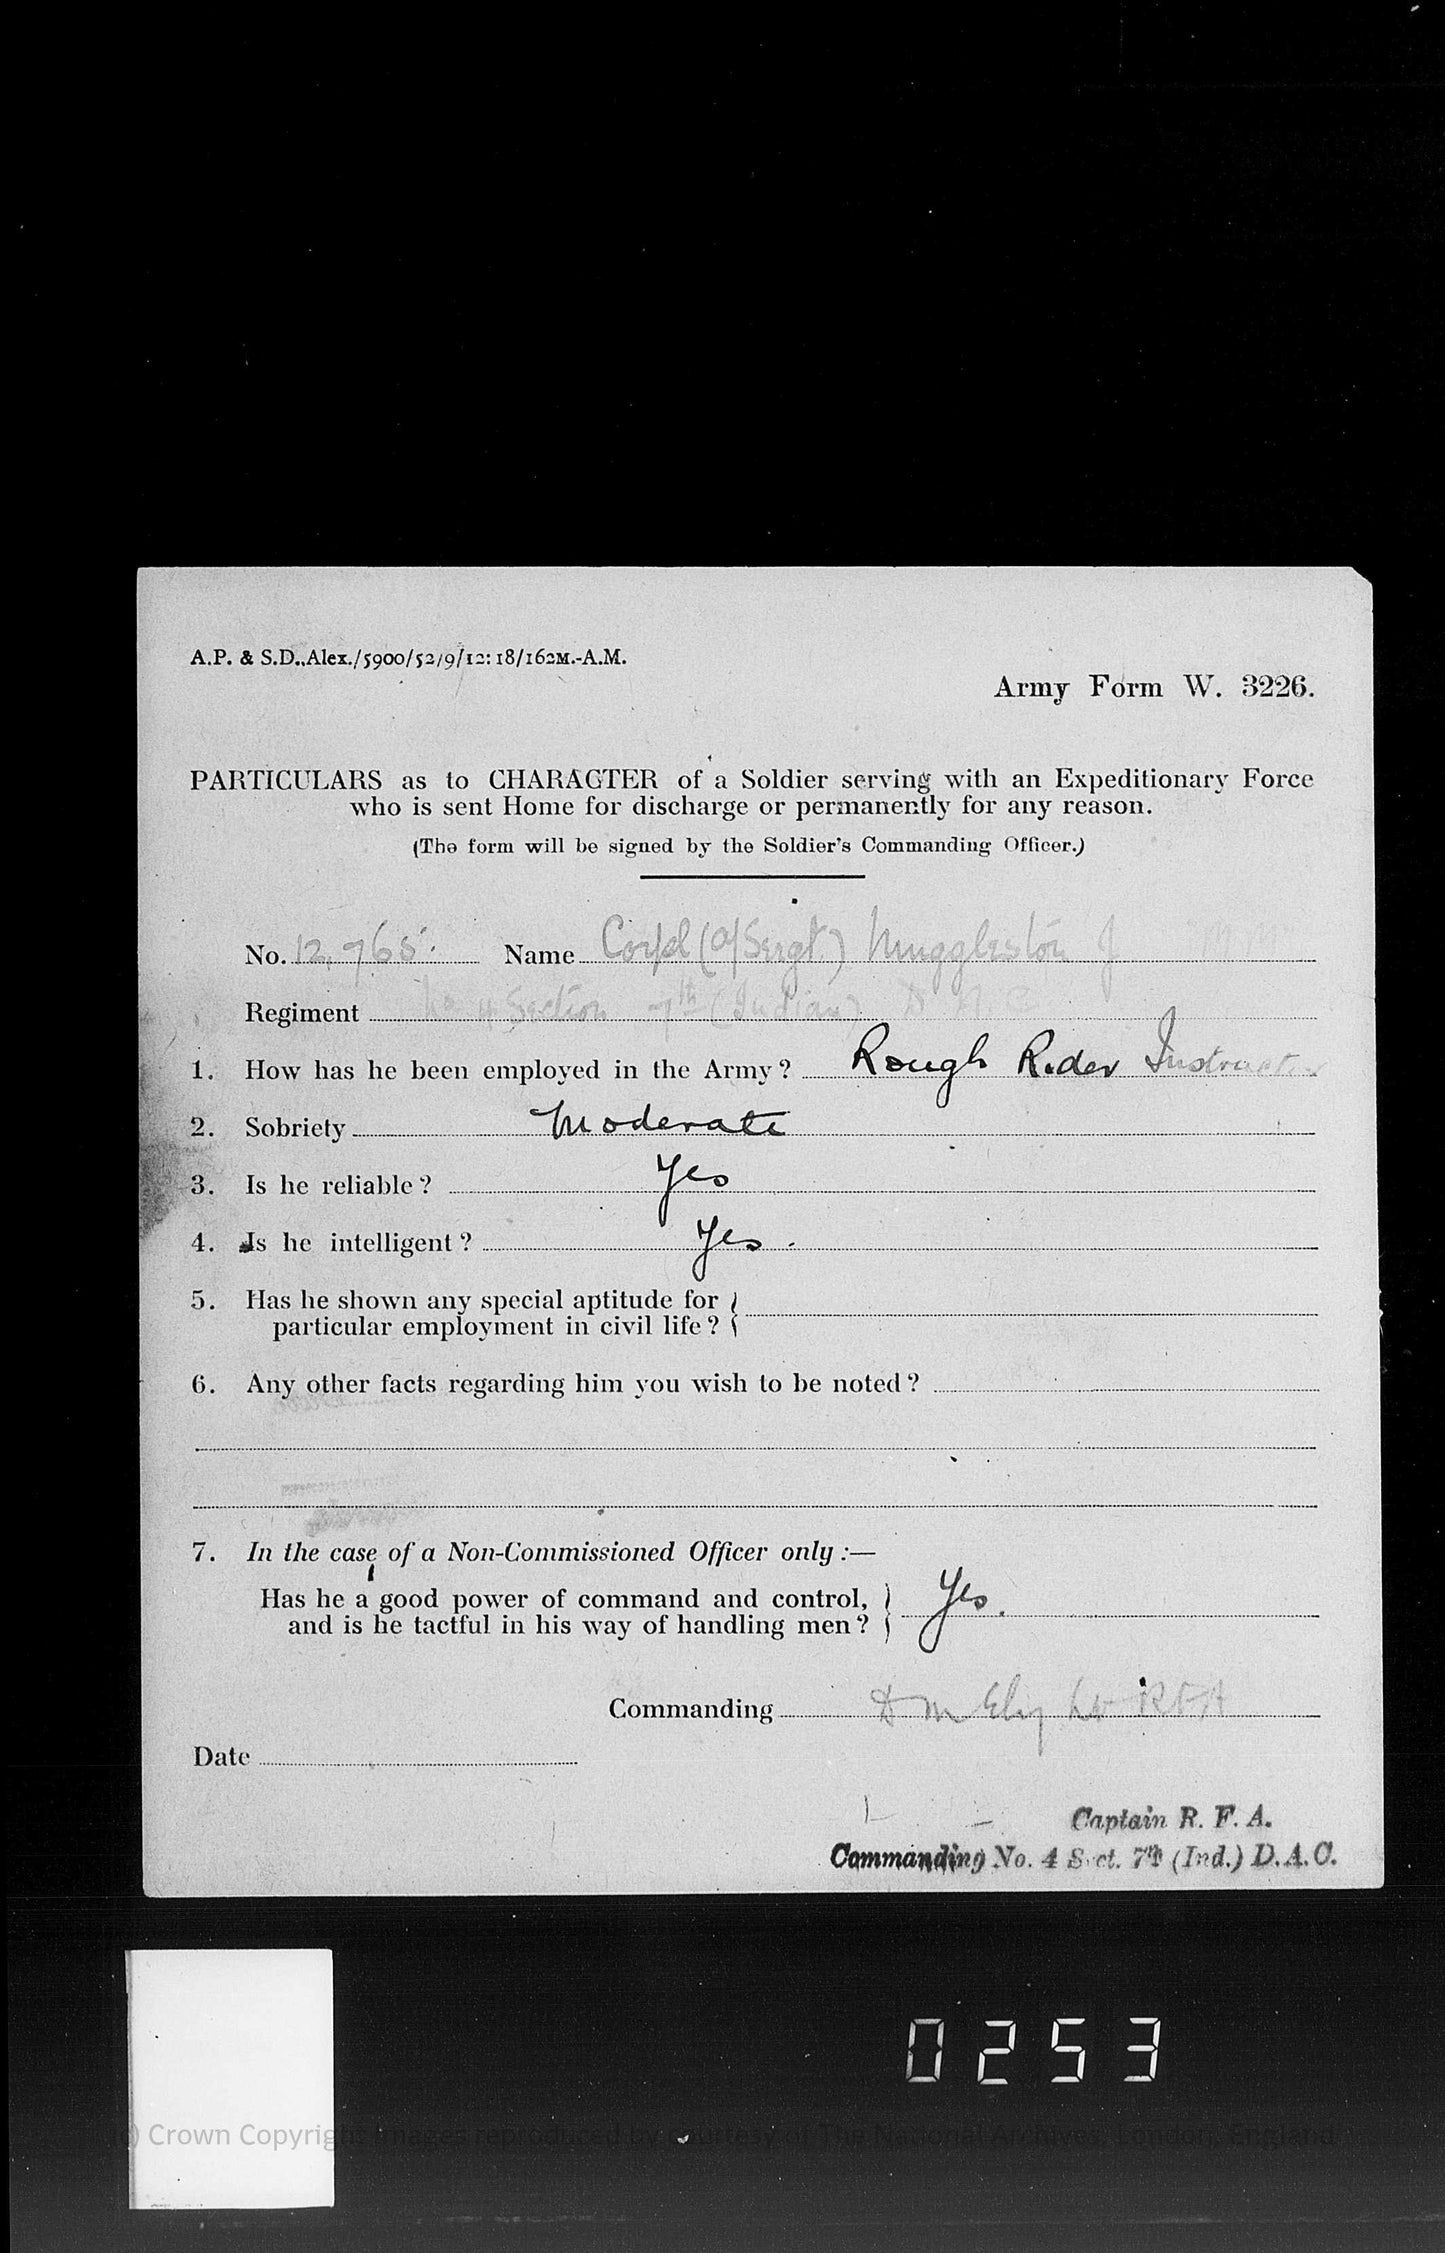 A.P. & S.D., Alex./5900/52/9/12:18/162M.-A.M.
Army Form W. 3226.
PARTICULARS as to CHARACTER of a Soldier serving with an Expeditionary Force
who is sent Home for discharge or permanently for any reason.
(The form will be signed by the Soldier's Commanding Officer.)
No. 12,765. Name Corpl (A/Sergt.) Muggleston J.
Regiment No 4 Section 7th (Indian) D.A.C.
1. How has he been employed in the Army? Rough Rider Instructor
2. Sobriety Moderate
3. Is he reliable? Yes
4. Is he intelligent? Yes.
5. Has he shown any special aptitude for
particular employment in civil life?
6. Any other facts regarding him you wish to be noted?
7. In the case of a Non-Commissioned Officer only:—
Has he a good power of command and control,
and is he tactful in his way of handling men? Yes.
Commanding D M Lt RFA
Date
Captain R. F. A.
Commanding No. 4 Sect. 7th (Ind.) D.A.C.
0253
(c) Crown Copyright Images reproduced by courtesy of The National Archives, London, England.